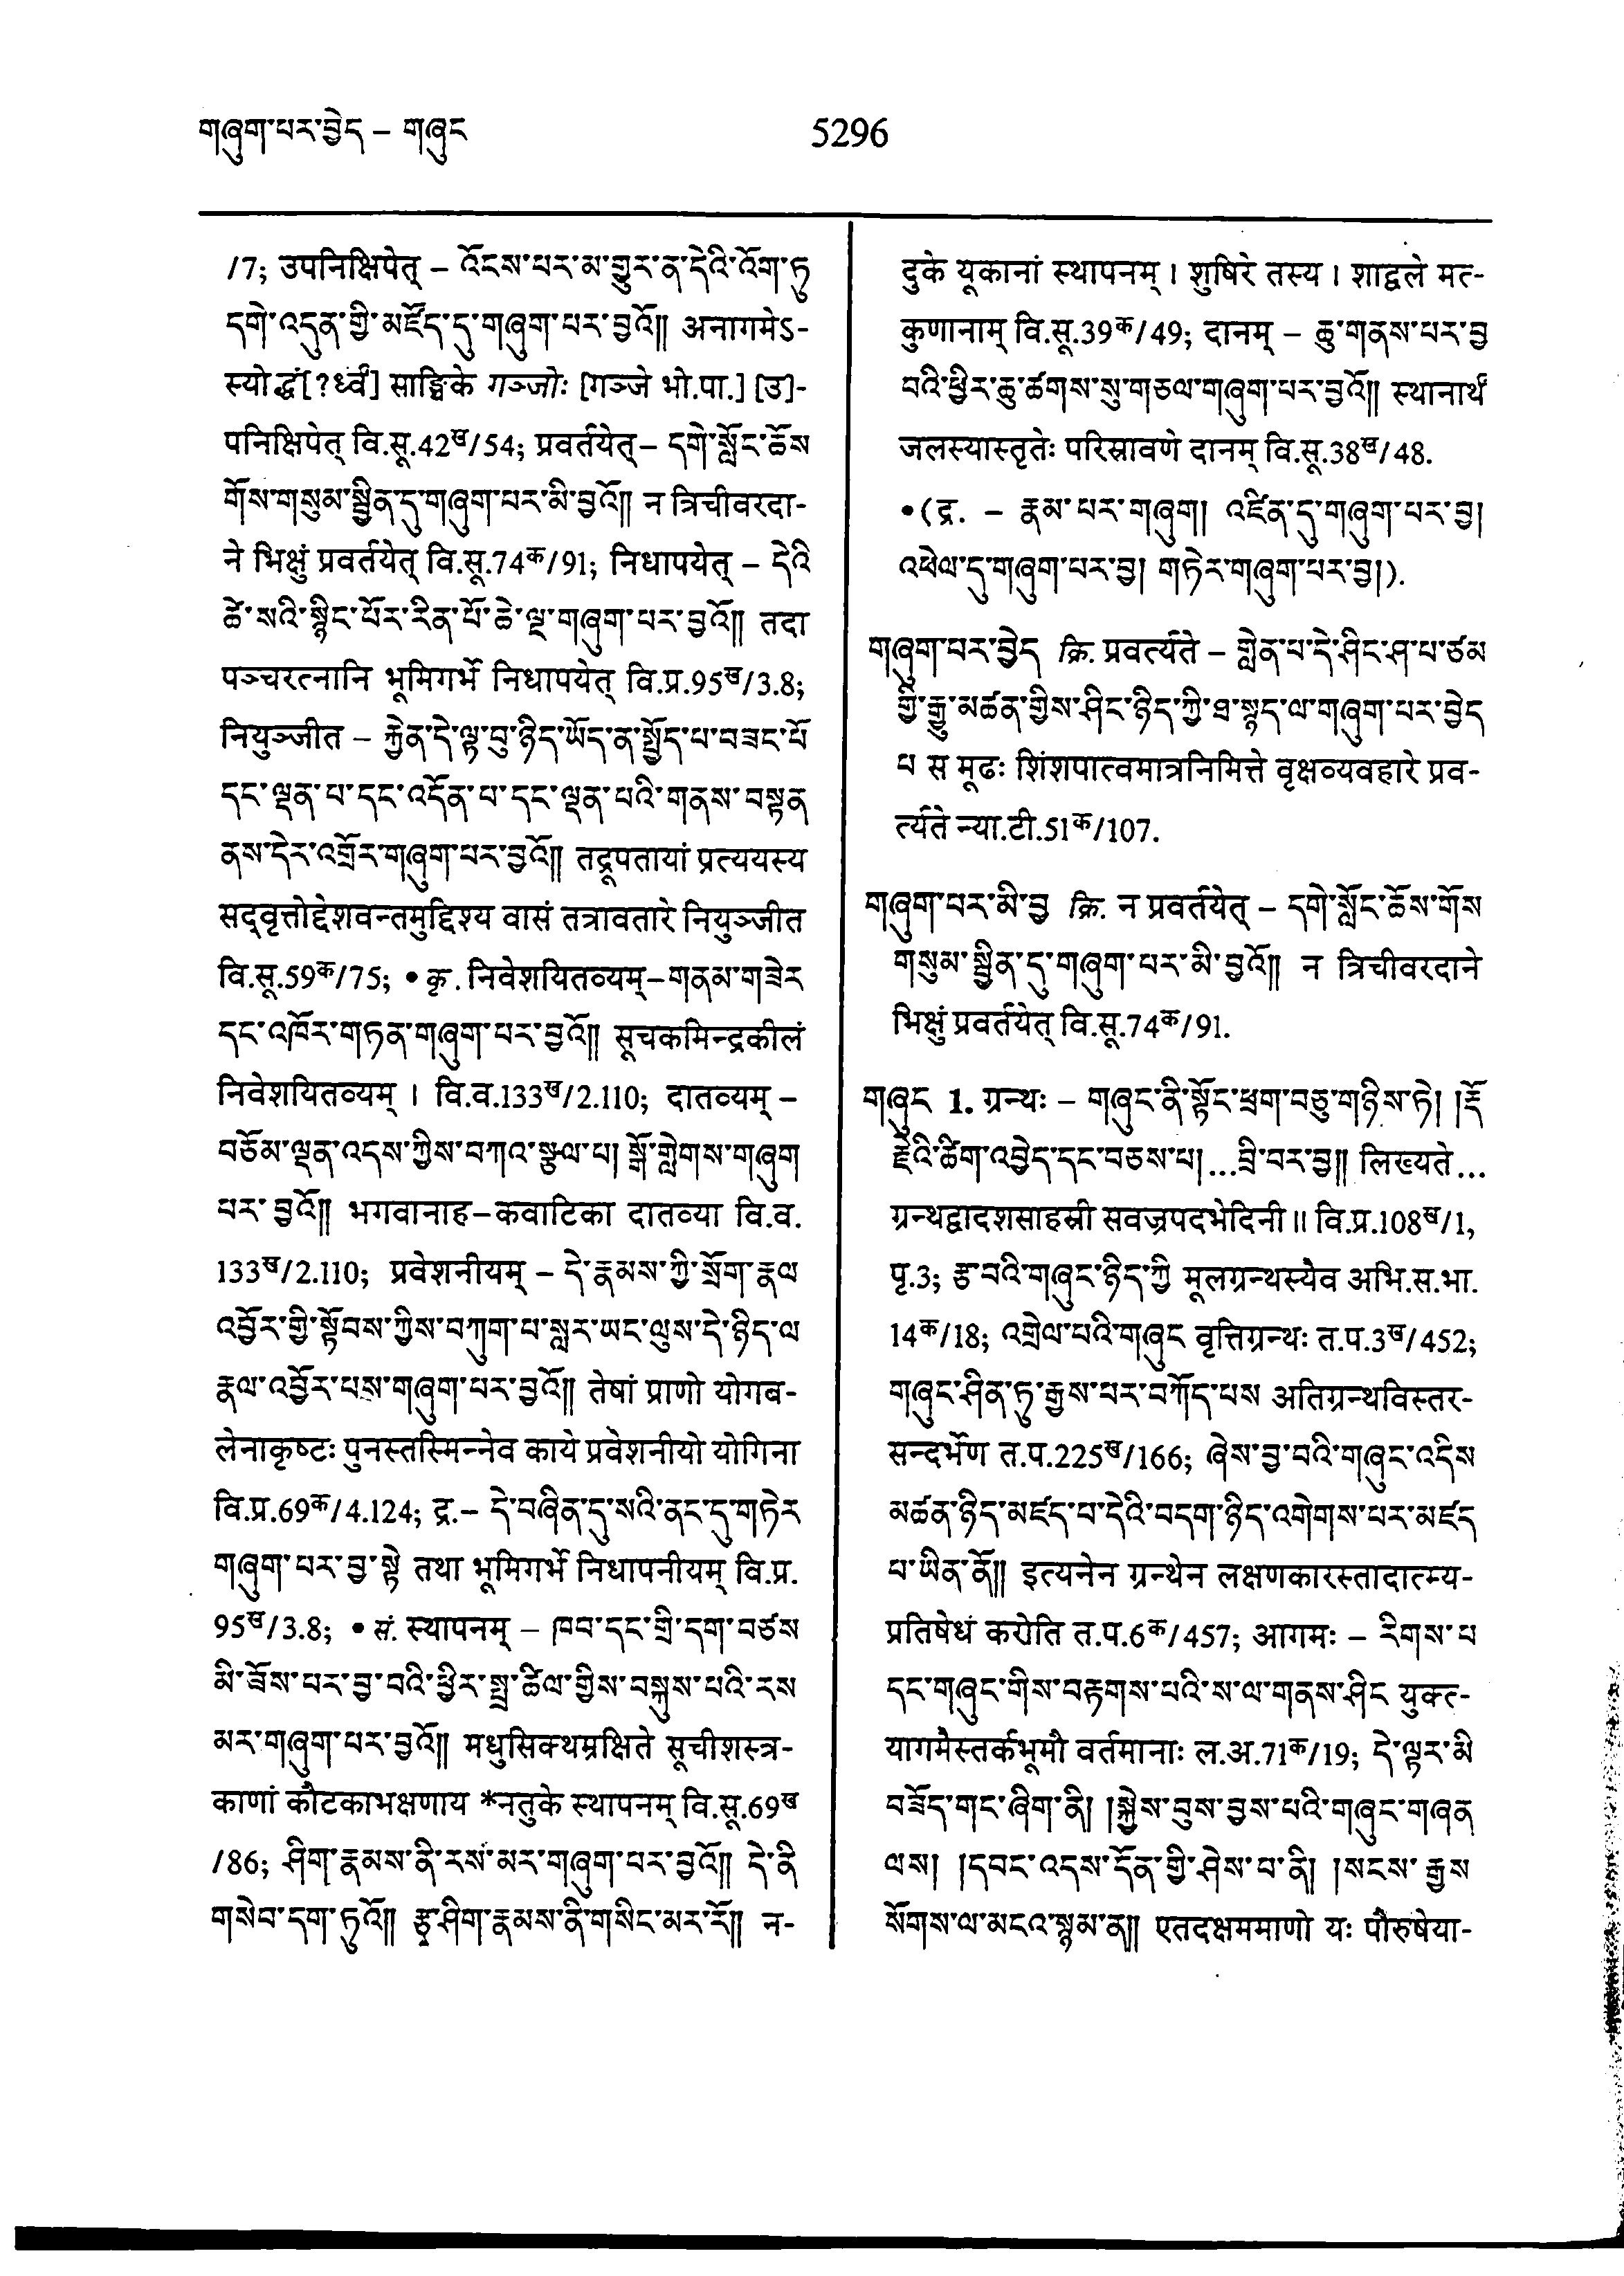 གཞུག་པར་བྱེད – གཞུང
5296
/7; उपनिक्षिपेत् – འོངས་པར་མ་གྱུར་ན་དེའི་འོག་ཏུ
དགེ་འདུན་གྱི་མཛོད་དུ་གཞུག་པར་བྱའོ།། अनागमेऽ-
स्योद्धं[?र्ध्वं] साङ्घिके गञ्जोः [गञ्जे भो.पा.] [उ]-
पनिक्षिपेत् वि.सू.42ख/54; प्रवर्तयेत्– དགེ་སློང་ཆོས
གོས་གསུམ་སྦྱིན་དུ་གཞུག་པར་མི་བྱའོ།། न त्रिचीवरदा-
ने भिक्षुं प्रवर्तयेत् वि.सू.74क/91; निधापयेत् – དེའི
ཚེ་སའི་སྙིང་པོར་རིན་པོ་ཆེ་ལྔ་གཞུག་པར་བྱའོ།། तदा
पञ्चरत्नानि भूमिगर्भे निधापयेत् वि.प्र.95ख/3.8;
नियुञ्जीत – རྐྱེན་དེ་ལྟ་བུ་ཉིད་ཡོད་ན་སྤྱོད་པ་བཟང་པོ
དང་ལྡན་པ་དང་འདོན་པ་དང་ལྡན་པའི་གནས་བསྟན
ནས་དེར་འགྲོར་གཞུག་པར་བྱའོ།། तद्रूपतायां प्रत्ययस्य
सद्वृत्तोद्देशवन्तमुद्दिश्य वासं तत्रावतारे नियुञ्जीत
वि.सू.59क/75; • कृ. निवेशयितव्यम्–གནམ་གཟེར
དང་འཁོར་གཏན་གཞུག་པར་བྱའོ།། सूचकमिन्द्रकीलं
निवेशयितव्यम् । वि.व.133ख/2.110; दातव्यम् –
བཅོམ་ལྡན་འདས་ཀྱིས་བཀའ་སྩལ་པ། སྒོ་གླེགས་གཞུག
པར་བྱའོ།། भगवानाह–कवाटिका दातव्या वि.व.
133ख/2.110; प्रवेशनीयम् – དེ་རྣམས་ཀྱི་སྲོག་རྣལ
འབྱོར་གྱི་སྟོབས་ཀྱིས་བཀུག་པ་སླར་ཡང་ལུས་དེ་ཉིད་ལ
རྣལ་འབྱོར་པས་གཞུག་པར་བྱའོ།། तेषां प्राणो योगब-
लेनाकृष्टः पुनस्तस्मिन्नेव काये प्रवेशनीयो योगिना
वि.प्र.69क/4.124; द्र.– དེ་བཞིན་དུ་སའི་ནང་དུ་གཏེར
གཞུག་པར་བྱ་སྟེ तथा भूमिगर्भे निधापनीयम् वि.प्र.
95ख/3.8; • सं. स्थापनम् – ཁབ་དང་གྲི་དག་བཙས
མི་ཟོས་པར་བྱ་བའི་ཕྱིར་སྤྲ་ཚིལ་གྱིས་བསྐུས་པའི་རས
མར་གཞུག་པར་བྱའོ།། मधुसिक्थम्रक्षिते सूचीशस्त्र-
काणां कौटकाभक्षणाय *नतुके स्थापनम् वि.सू.69ख
/86; ཤིག་རྣམས་ནི་རས་མར་གཞུག་པར་བྱའོ།། དེ་ནི
གསེབ་དག་ཏུའོ།། རྩྭ་ཤིག་རྣམས་ནི་གསིང་མར་རོ།། न-
दुके यूकानां स्थापनम् । शुषिरे तस्य । शाद्वले मत्-
कुणानाम् वि.सू.39क/49; दानम् – ཆུ་གནས་པར་བྱ
བའི་ཕྱིར་ཆུ་ཚགས་སུ་གཅལ་གཞུག་པར་བྱའོ།། स्थानार्थं
जलस्यास्तृतेः परिस्रावणे दानम् वि.सू.38ख/48.
•(द्र. – རྣམ་པར་གཞུག། འཛིན་དུ་གཞུག་པར་བྱ།
འཕེལ་དུ་གཞུག་པར་བྱ། གཏེར་གཞུག་པར་བྱ།).
གཞུག་པར་བྱེད क्रि. प्रवर्त्यते – གླེན་པ་དེ་ཤིང་ཤ་པ་ཙམ
གྱི་རྒྱུ་མཚན་གྱིས་ཤིང་ཉིད་ཀྱི་ཐ་སྙད་ལ་གཞུག་པར་བྱེད
པ स मूढः शिंशपात्वमात्रनिमित्ते वृक्षव्यवहारे प्रव-
र्त्यते न्या.टी.51क/107.
གཞུག་པར་མི་བྱ क्रि. न प्रवर्तयेत् – དགེ་སློང་ཆོས་གོས
གསུམ་སྦྱིན་དུ་གཞུག་པར་མི་བྱའོ།། न त्रिचीवरदाने
भिक्षुं प्रवर्तयेत् वि.सू.74क/91.
གཞུང 1. ग्रन्थः – གཞུང་ནི་སྟོང་ཕྲག་བཅུ་གཉིས་ཏེ། །རྡོ
རྗེའི་ཚིག་འབྱེད་དང་བཅས་པ།...བྲི་བར་བྱ།། लिख्यते...
ग्रन्थद्वादशसाहस्री सवज्रपदभेदिनी ॥ वि.प्र.108ख/1,
पृ.3; རྩ་བའི་གཞུང་ཉིད་ཀྱི मूलग्रन्थस्यैव अभि.स.भा.
14क/18; འགྲེལ་པའི་གཞུང वृत्तिग्रन्थः त.प.3ख/452;
གཞུང་ཤིན་ཏུ་རྒྱས་པར་བཀོད་པས अतिग्रन्थविस्तर-
सन्दर्भेण त.प.225ख/166; ཞེས་བྱ་བའི་གཞུང་འདིས
མཚན་ཉིད་མཛད་པ་དེའི་བདག་ཉིད་འགེགས་པར་མཛད
པ་ཡིན་ནོ།། इत्यनेन ग्रन्थेन लक्षणकारस्तादात्म्य-
प्रतिषेधं करोति त.प.6क/457; आगमः – རིགས་པ
དང་གཞུང་གིས་བརྟགས་པའི་ས་ལ་གནས་ཤིང युक्त्-
यागमैस्तर्कभूमौ वर्तमानाः ल.अ.71क/19; དེ་ལྟར་མི
བཟོད་གང་ཞིག་ནི། །སྐྱེས་བུས་བྱས་པའི་གཞུང་གཞན
ལས། །དབང་འདས་དོན་གྱི་ཤེས་པ་ནི། །སངས་རྒྱས
སོགས་ལ་མངའ་སྙམ་ན།། एतदक्षममाणो यः पौरुषेया-